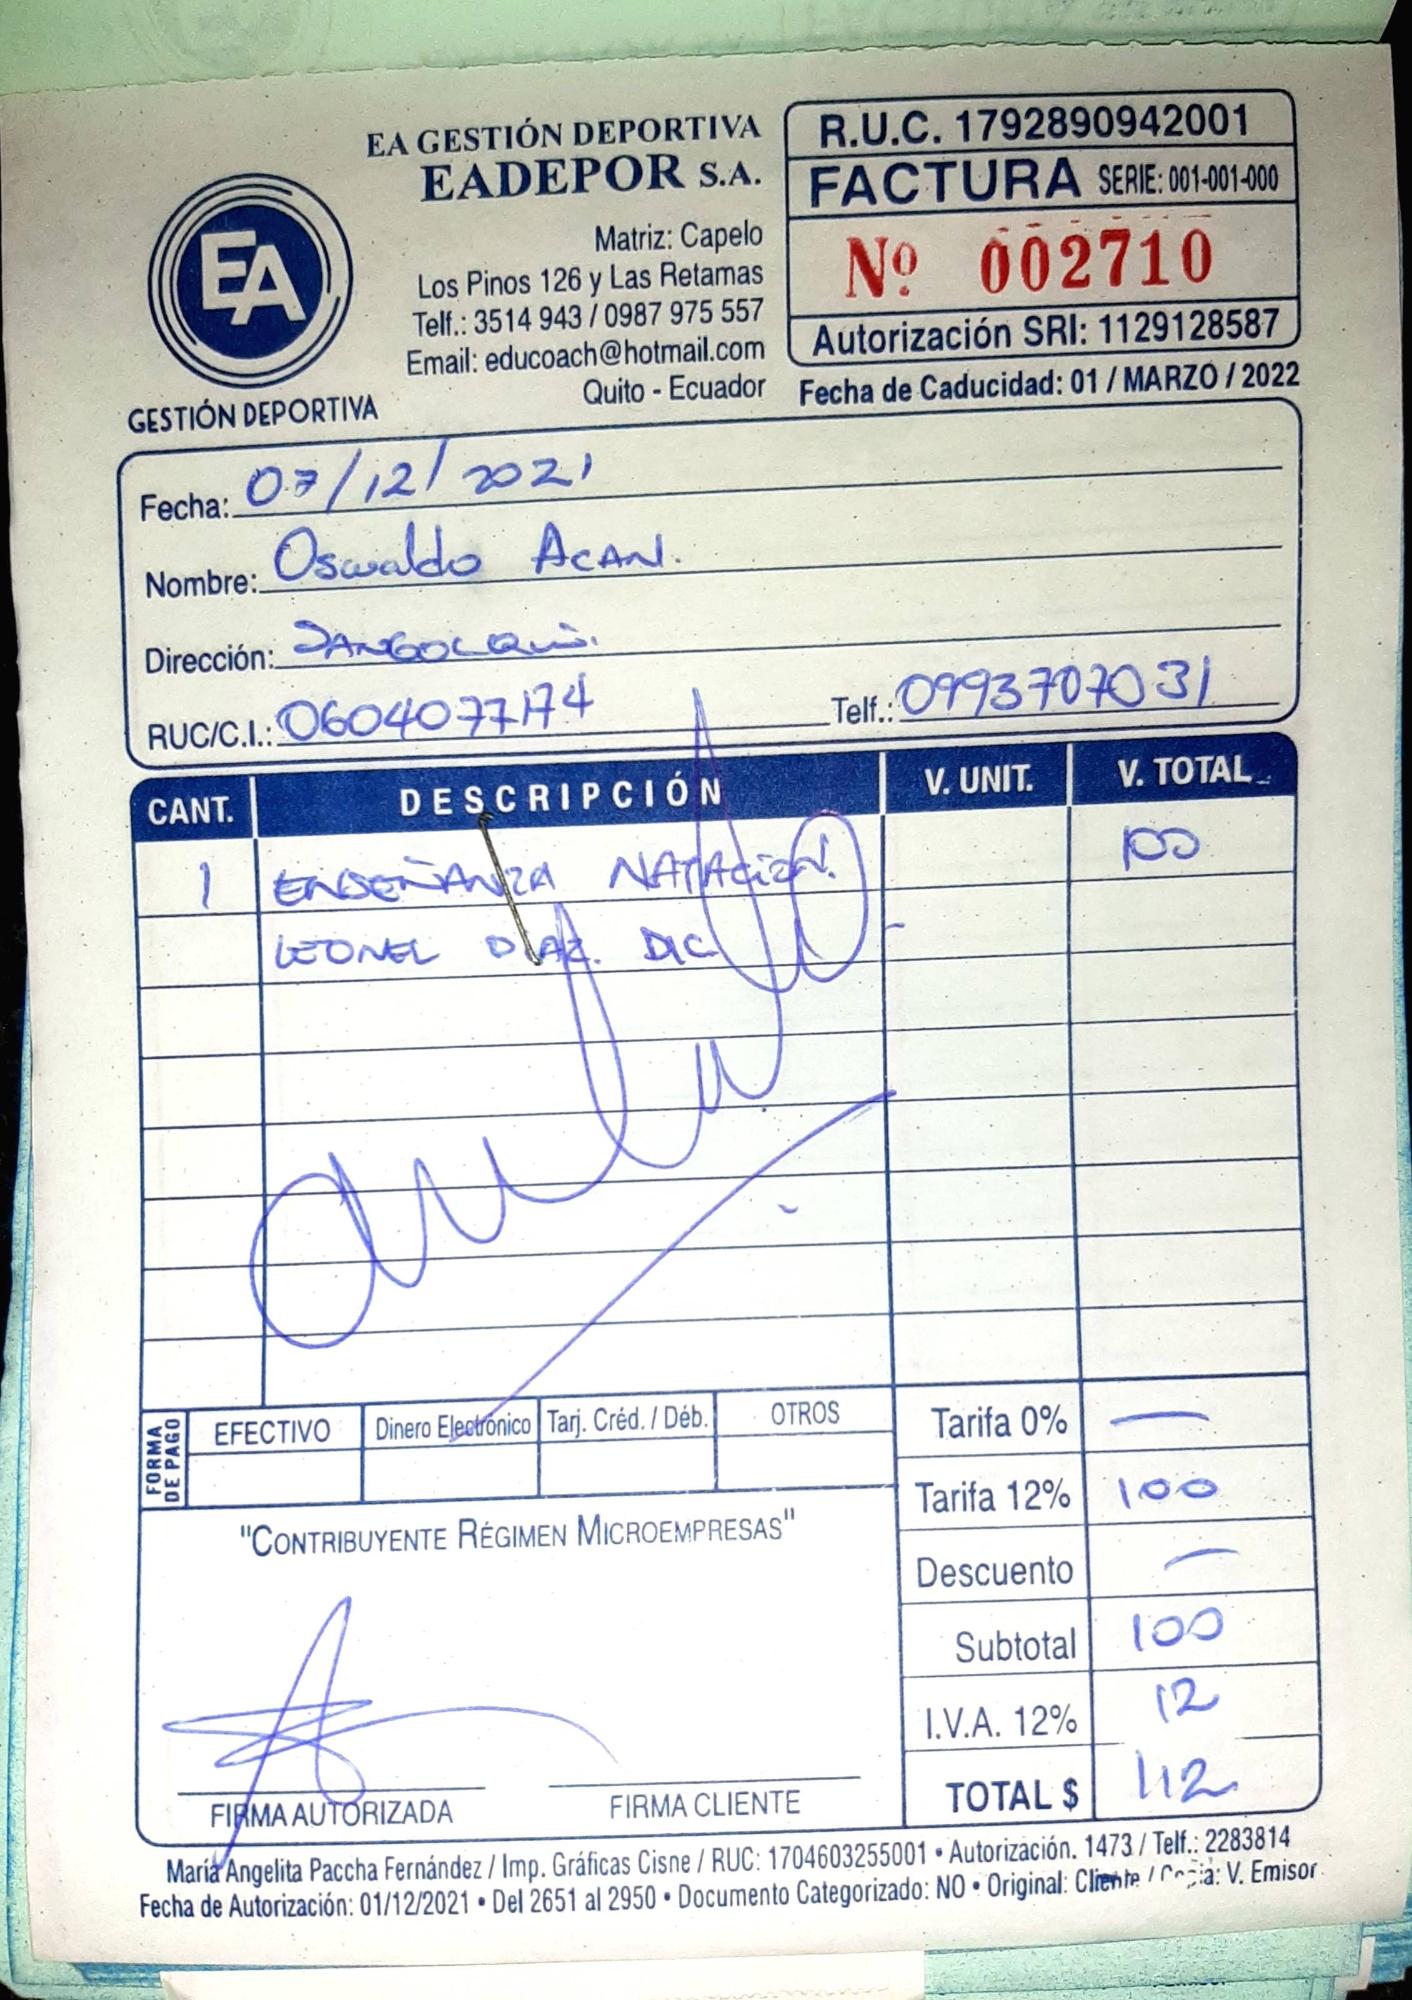 EA GESTIÓN DEPORTIVA
EADEPOR S.A.
EA
GESTIÓN DEPORTIVA
Matriz: Capelo
Los Pinos 126 y Las Retamas
Telf.: 3514 943 / 0987 975 557
Email: educoach@hotmail.com
Quito - Ecuador
R.U.C. 1792890942001
FACTURA SERIE: 001-001-000
Nº 002710
Autorización SRI: 1129128587
Fecha de Caducidad: 01 / MARZO / 2022
Fecha: 07/12/2021
Nombre: Oswaldo ACAN.
Dirección: SANGOLQUÍ.
RUC/C.I.: 0604077174 Telf.: 0993707031
CANT. DESCRIPCIÓN V. UNIT. V. TOTAL
1 ENSEÑANZA NATACIÓN. 100
LEONEL DIAZ. DIC
FORMA DE PAGO
EFECTIVO Dinero Electrónico Tarj. Créd. / Déb. OTROS
Tarifa 0% —
Tarifa 12% 100
Descuento —
Subtotal 100
I.V.A. 12% 12
TOTAL $ 112
"CONTRIBUYENTE RÉGIMEN MICROEMPRESAS"
FIRMA AUTORIZADA FIRMA CLIENTE
María Angelita Paccha Fernández / Imp. Gráficas Cisne / RUC: 1704603255001 • Autorización. 1473 / Telf.: 2283814
Fecha de Autorización: 01/12/2021 • Del 2651 al 2950 • Documento Categorizado: NO • Original: Cliente / Copia: V. Emisor